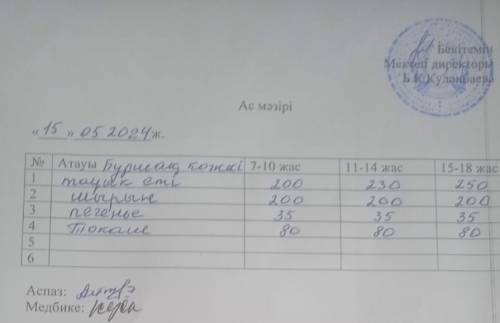 Бекітемін
Мектеп директоры
Б.К.Куланбаева
Ас мәзірі
«15» 05 2024 ж.
№ Атауы Бұршақ көжкі 7-10 жас 11-14 жас 15-18 жас
1 тауық еті 200 230 250
2 шырын 200 200 200
3 печенье 35 35 35
4 Токаш 80 80 80
5
6
Аспаз:
Медбике: